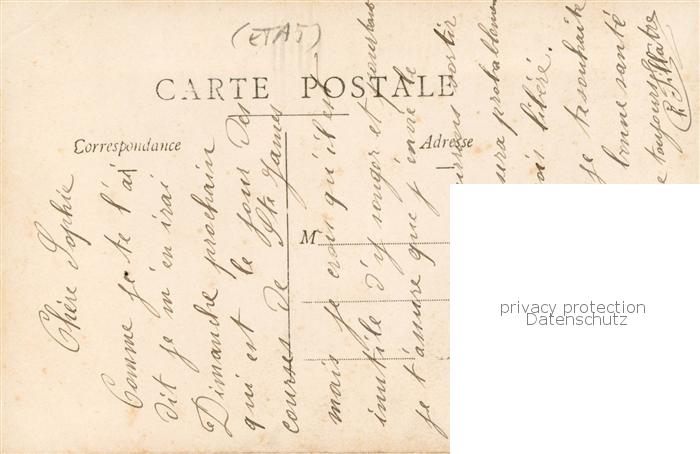 (ETAT)
CARTE POSTALE
Correspondance
Adresse
M
Chère Sophie
Comme je te l'ai
dit je m'en irai
Dimanche prochain
qui est le jour des
courses de Sta James
mais je crois qu'il est
inutile d'y songer et pourtant
je t'assure que j'envie le
sortir
sera probablement
ois libéré.
je te souhaite
bonne santé
e toujours
privacy protection
Datenschutz